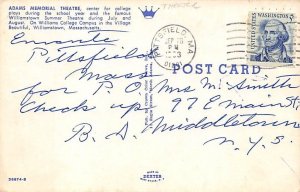 THEATER
ADAMS MEMORIAL THEATRE, center for college
plays during the school year and the famous
Williamstown Summer Theatre during July and
August. On Williams College Campus in the Village
Beautiful, Williamstown, Massachusetts.
PITTSFIELD, MA
PM
WASHINGTON
5¢
POST CARD
Enroute
Pittsfield
Mass
for P.O.
Check up
B. D.
Mrs McSmith
97 E main St
Middletown
N.Y.S.
34674-B
MADE BY
DEXTER